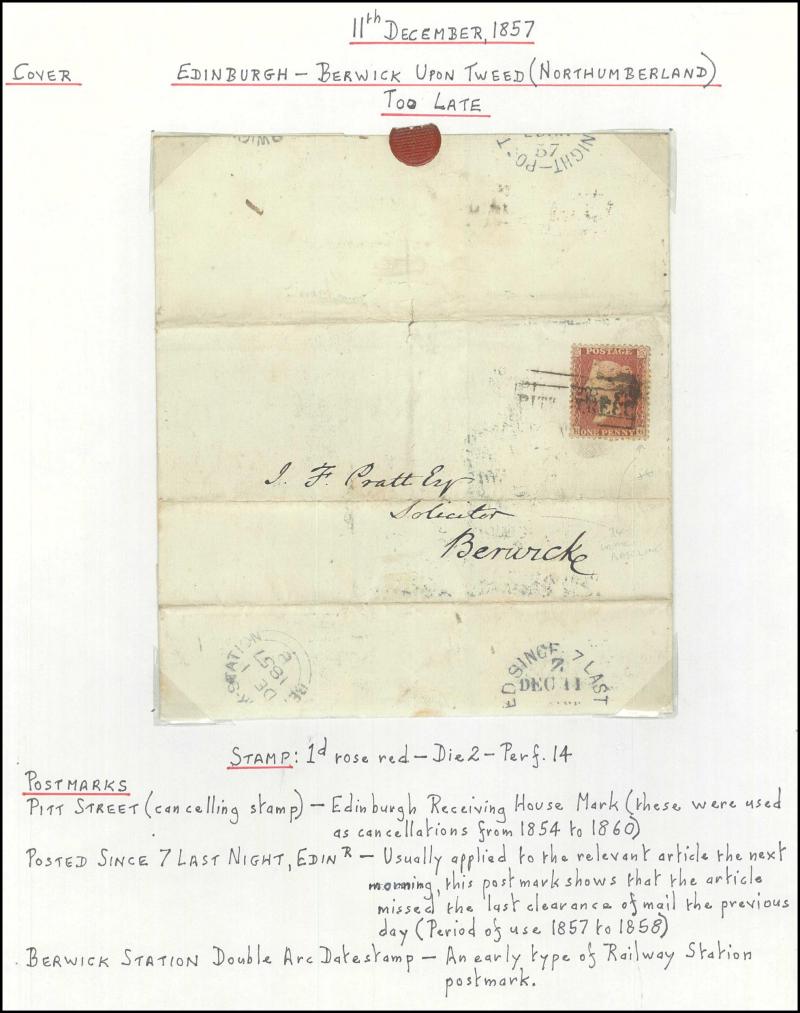 11th DECEMBER, 1857
COVER
EDINBURGH - BERWICK UPON TWEED (NORTHUMBERLAND)
TOO LATE
57
NIGHT-PO
POSTAGE
PIT REET
ONE PENNY
J. F. Pratt Esq
Solicitor
Berwicke
STATION
DE
1857
ED SINCE 7 LAST
DEC 11
STAMP: 1d rose red - Die 2 - Perf. 14
POSTMARKS
PITT STREET (cancelling stamp) - Edinburgh Receiving House Mark (these were used
as cancellations from 1854 to 1860)
POSTED SINCE 7 LAST NIGHT, EDINR - Usually applied to the relevant article the next
morning, this postmark shows that the article
missed the last clearance of mail the previous
day (Period of use 1857 to 1858)
BERWICK STATION Double Arc Datestamp - An early type of Railway Station
postmark.